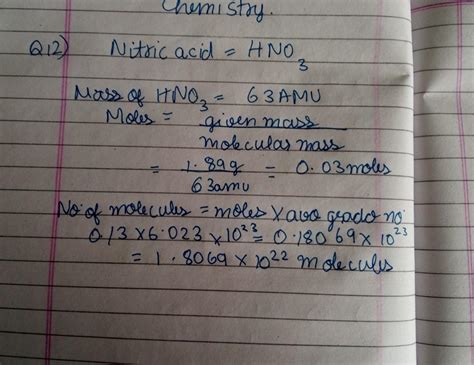 Chemistry.
Q12) Nitric acid = HNO3
Mass of HNO3 = 63AMU
Moles = given mass
molecular mass
= 1.89g = 0.03moles
63amu
No of molecules = moles x avo grado no:
0.13 x 6.023 x 10^23 = 0.18069 x 10^23
= 1.8069 x 10^22 molecules